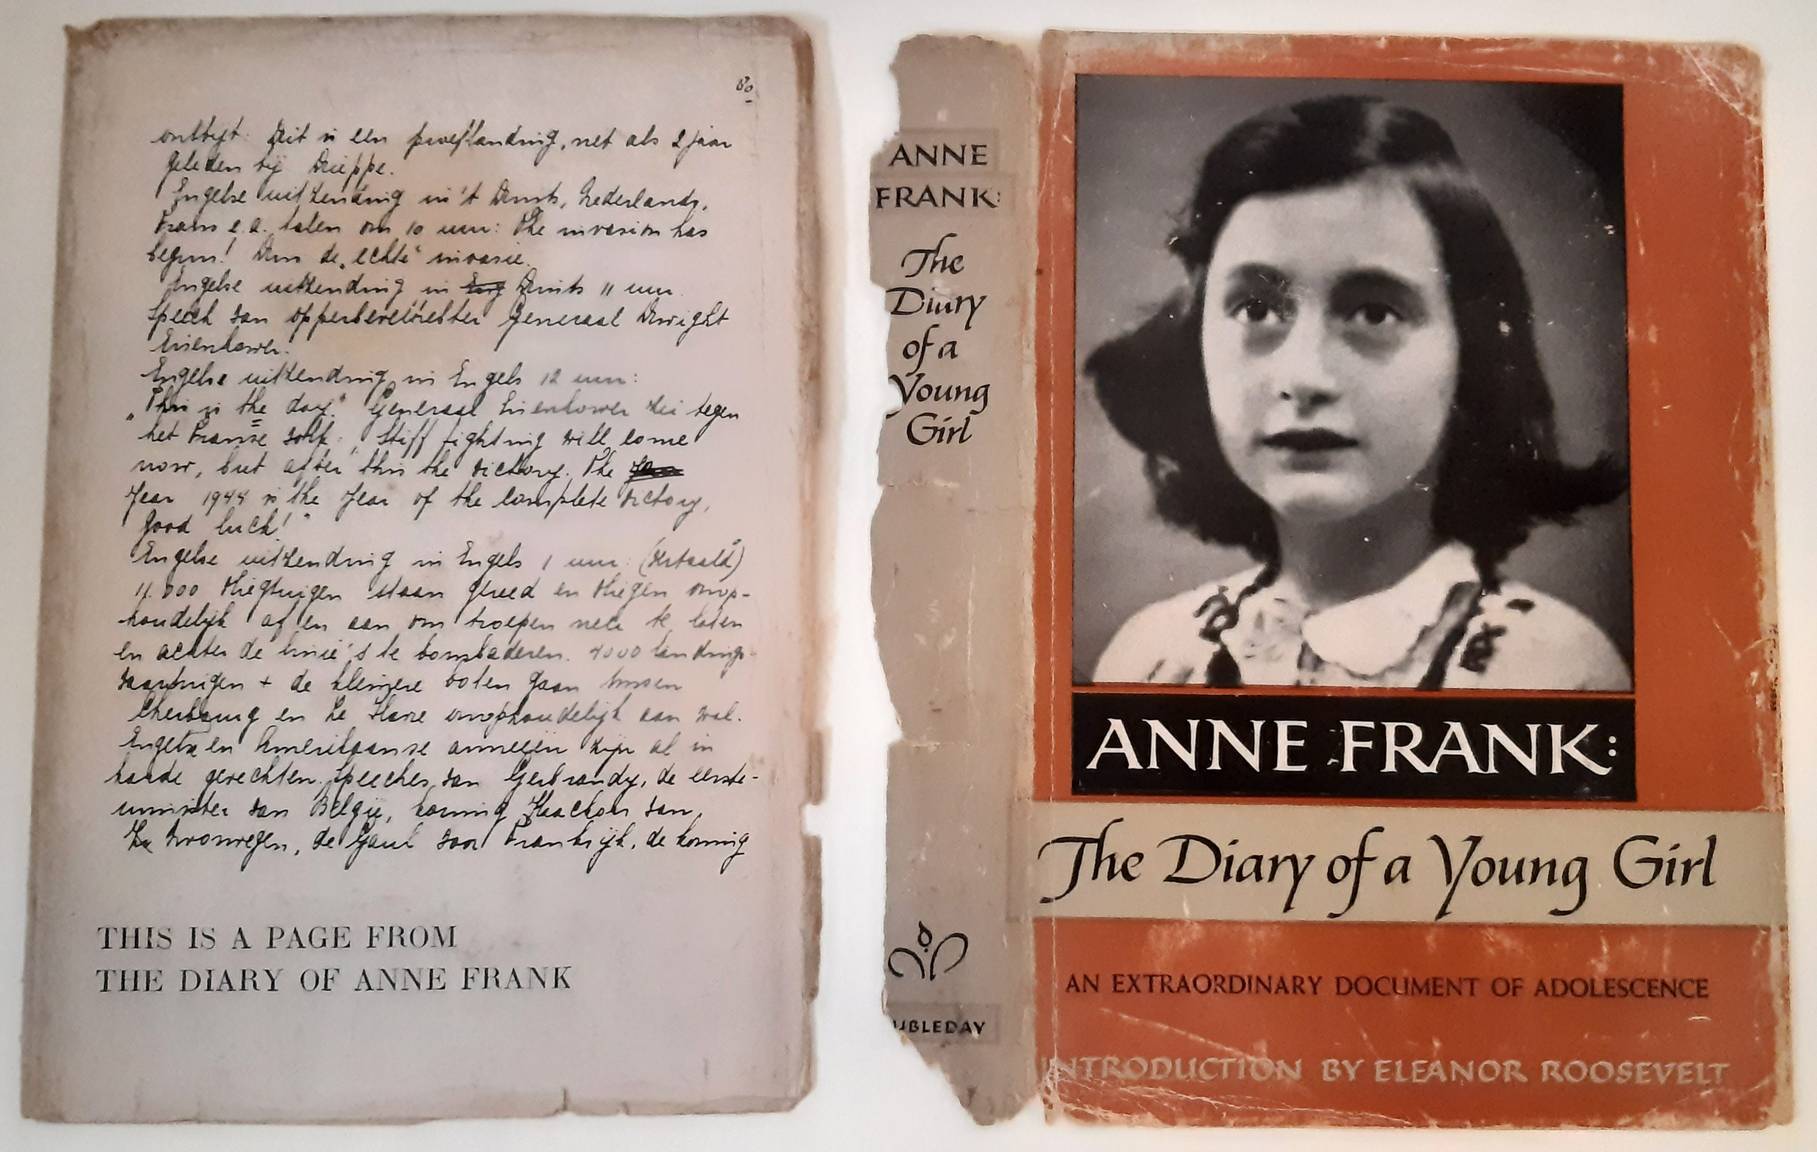 80
ontbijt: Dit is een proeflanding, net als 2 jaar
geleden bij Dieppe.
Engelse uitzending in 't Duits, Nederlands,
Frans e.a. talen om 10 uur: The invasion has
begun! Dus de „echte" invasie.
Engelse uitzending in Duits 11 uur
speech van opperbevelhebber Generaal Dwight
Eisenhower.
Engelse uitzending in Engels 12 uur:
„This is the day." Generaal Eisenhower zei tegen
het Franse volk: „Stiff fighting will come
now, but after this the victory. The
year 1944 is the year of the complete victory,
good luck!"
Engelse uitzending in Engels 1 uur: (vertaald)
11.000 vliegtuigen staan gereed en vliegen onop-
houdelijk af en aan om troepen neer te laten
en achter de linie's te bombarderen. 4000 landings-
vaartuigen + de kleinere boten gaan tussen
Cherbourg en Le Havre onophoudelijk aan wal.
Engelse en Amerikaanse armeeën zijn al in
harde gevechten. Speeches van Gerbrandy, de eerste-
minister van België, koning Haackon van
Noorwegen, de Gaul voor Frankrijk, de koning
THIS IS A PAGE FROM
THE DIARY OF ANNE FRANK
ANNE
FRANK:
The
Diary
of a
Young
Girl
UBLEDAY
ANNE FRANK:
The Diary of a Young Girl
AN EXTRAORDINARY DOCUMENT OF ADOLESCENCE
INTRODUCTION BY ELEANOR ROOSEVELT